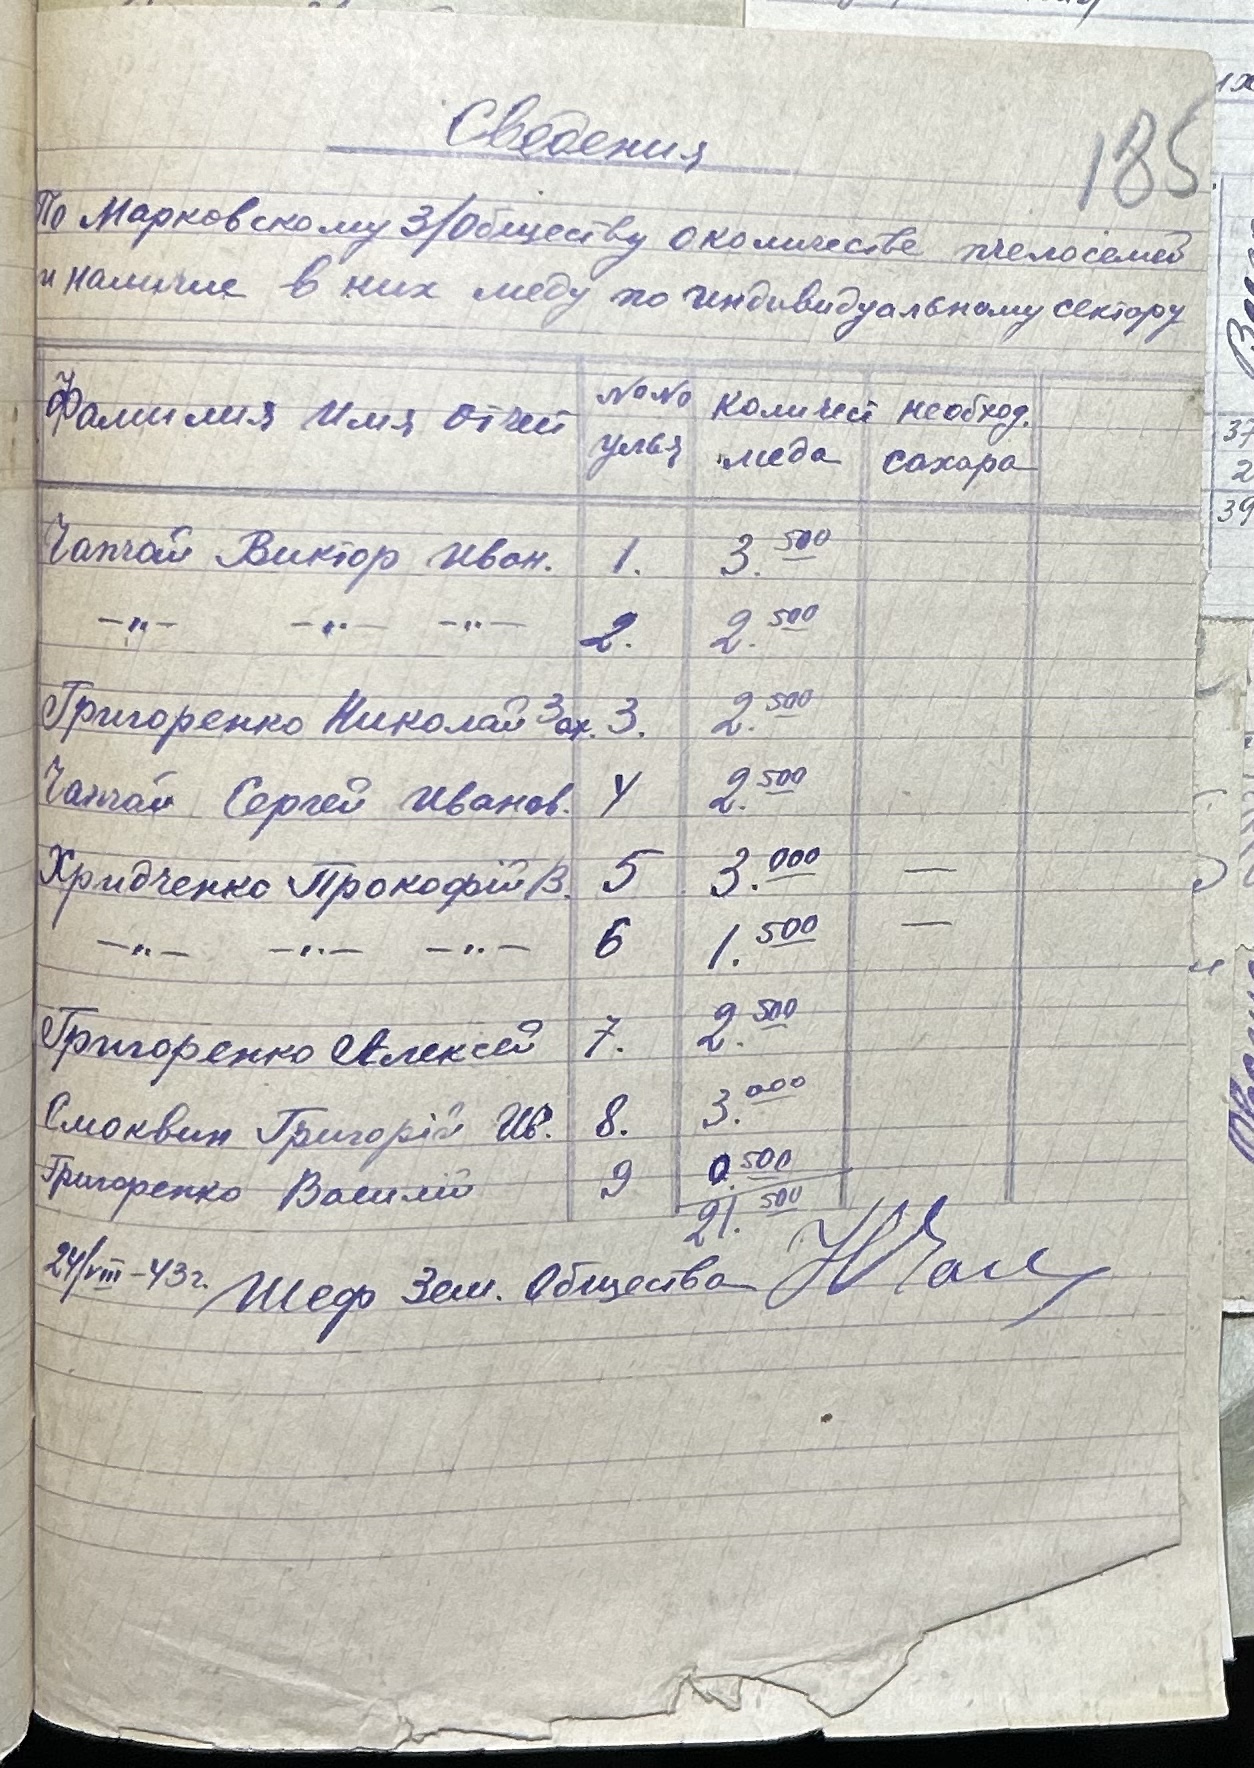 185
Сведения
По Марковскому З/Обществу о количестве пчелосемей
и наличие в них меду по индивидуальному сектору
Фамилия Имя Отчей №№ улья количест меда необход. сахара
Чапчай Виктор Иван. 1. 3.500
—"— —"— —"— 2. 2.500
Григоренко Николай Зах. 3. 2.500
Чапчай Сергей Иванов. 4 2.500
Хридченко Прокофій В. 5 3.000 —
—"— —"— —"— 6 1.500 —
Григоренко Алексей 7. 2.500
Смоквин Григорій Ив. 8. 3.000
Григоренко Василій 9 0.500
21.500
24/VIII-43 г. Шеф Зем. Общества